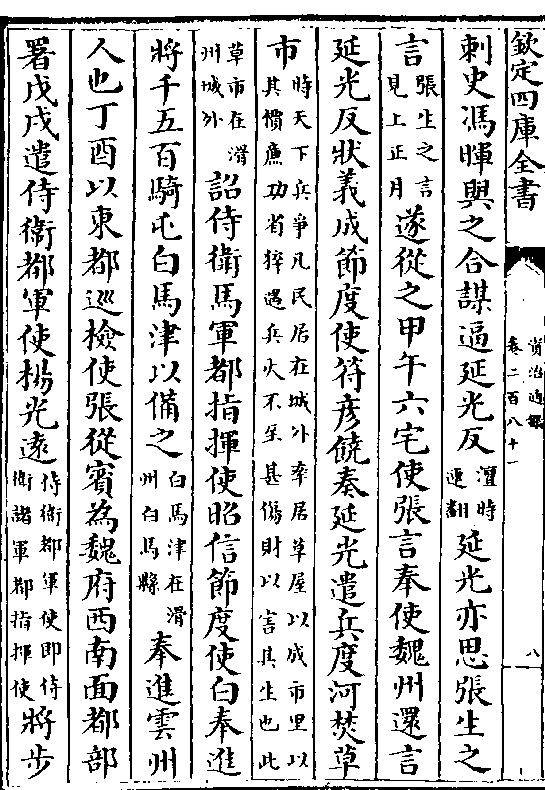 欽定四庫全書
資治通鑑
卷二百八十一
八
刺史馮暉與之合謀逼延光反
澶時
連翻
延光亦思張生之
言
張生之言
見上正月
遂從之甲午六宅使張言奉使魏州還言
延光反狀義成節度使符彥饒奏延光遣兵度河焚草
市
時天下兵爭凡民居在城外率居草屋以成市里以
其慣廉功省猝遇兵火不至甚傷財以害其生也此
草市在滑
州城外
詔侍衛馬軍都指揮使昭信節度使白奉進
將千五百騎屯白馬津以備之
白馬津在滑
州白馬縣
奉進雲州
人也丁酉以東都巡檢使張從賓為魏府西南面都部
署戊戌遣侍衛都軍使楊光遠
侍衛都軍使即侍
衛諸軍都指揮使
將步